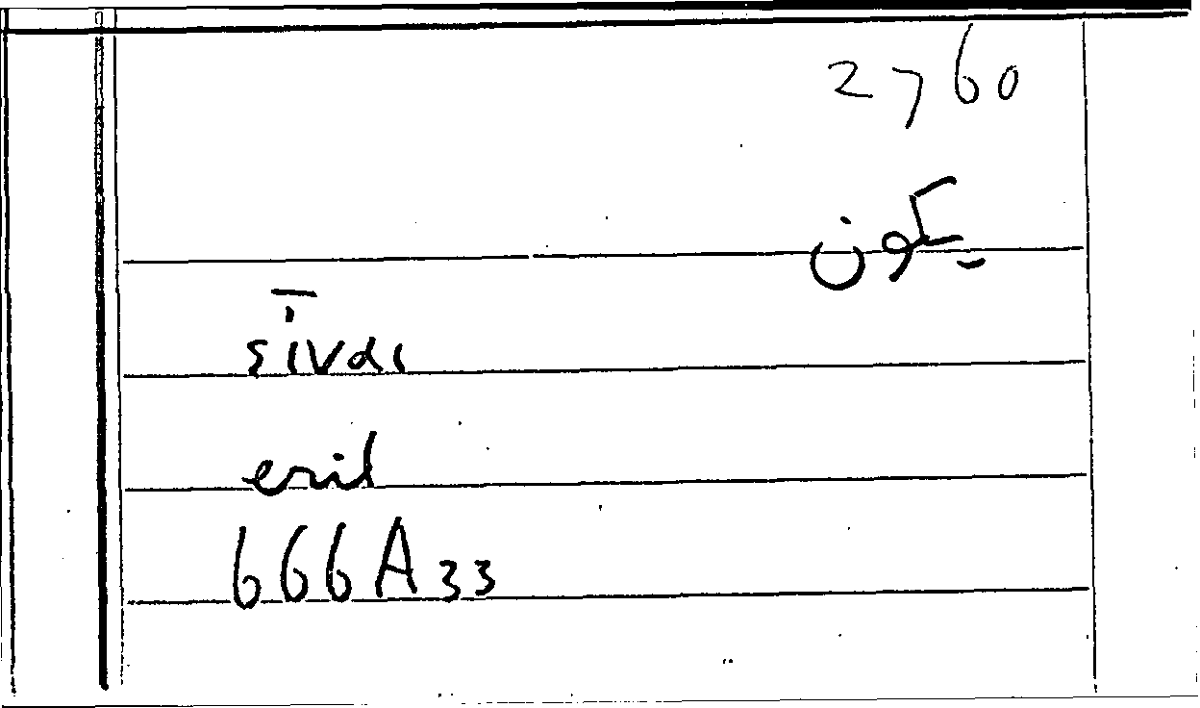 2760
يكون
sivdı
eril
666A33